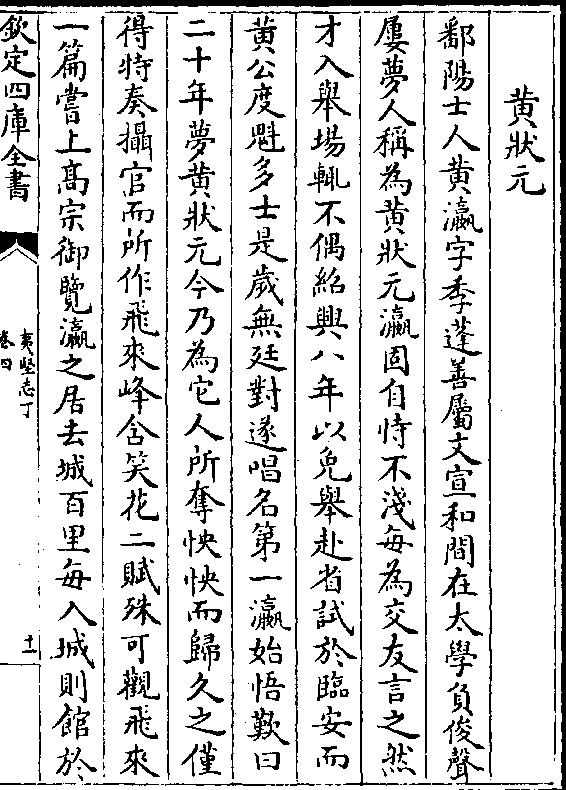 黄狀元
鄱陽士人黄瀛字季蓬善屬文宣和間在太學負俊聲
屢夢人稱為黄狀元瀛固自恃不淺每為交友言之然
才入舉場輒不偶紹興八年以免舉赴省試於臨安而
黄公度魁多士是歲無廷對遂唱名第一瀛始悟歎曰
二十年夢黄狀元今乃為它人所奪怏怏而歸久之僅
得特奏攝官而所作飛來峰含笑花二賦殊可觀飛來
一篇嘗上髙宗御覽瀛之居去城百里每入城則館於
欽定四庫全書
夷堅志丁
卷四
十一